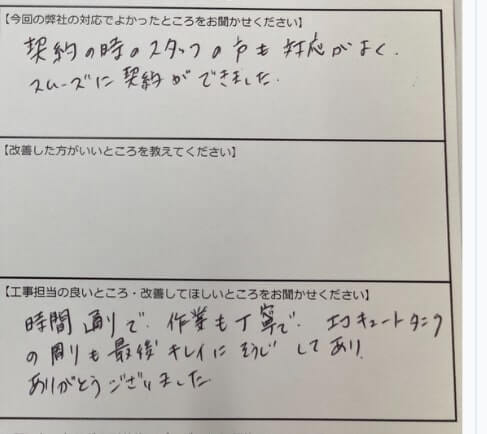 【今回の弊社の対応でよかったところをお聞かせください】
契約の時のスタッフの方も対応がよく、
スムーズに契約ができました.
【改善した方がいいところを教えてください】
【工事担当の良いところ・改善してほしいところをお聞かせください】
時間通りで、作業も丁寧で、エコキュートタンク
の周りも最後キレイにそうじしてあり、
ありがとうございました